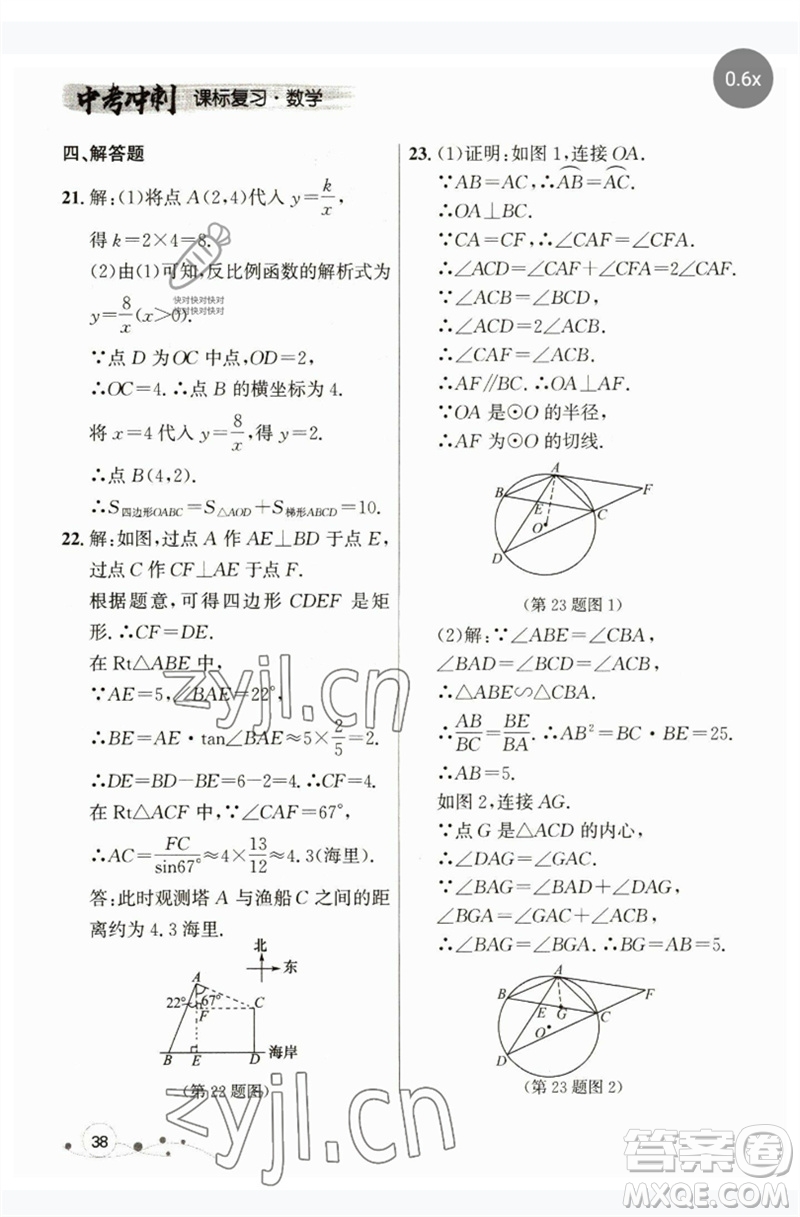 0.6x
中考冲刺 课标复习·数学
四、解答题
21. 解:(1)将点 A(2,4)代入 y=k/x,
得 k=2×4=8.
(2)由(1)可知,反比例函数的解析式为
y=8/x(x>0).
快对快对快对
快对快对快对
∵点 D 为 OC 中点,OD=2,
∴OC=4. ∴点 B 的横坐标为 4.
将 x=4 代入 y=8/x,得 y=2.
∴点 B(4,2).
∴S四边形OABC=S△AOD+S梯形ABCD=10.
22. 解:如图,过点 A 作 AE⊥BD 于点 E,
过点 C 作 CF⊥AE 于点 F.
根据题意,可得四边形 CDEF 是矩
形. ∴CF=DE.
在 Rt△ABE 中,
∵AE=5,∠BAE=22°,
∴BE=AE·tan∠BAE≈5×2/5=2.
∴DE=BD-BE=6-2=4.
在 Rt△ACF 中,∵∠CAF=67°,
∴AC=FC/sin67°≈4×13/12≈4.3(海里).
答:此时观测塔 A 与渔船 C 之间的距
离约为 4.3 海里.
北
东
A
22° 67°
F
C
B E D 海岸
(第 22 题图)
38
23. (1)证明:如图 1,连接 OA.
∵AB=AC,∴⌒AB=⌒AC.
∴OA⊥BC.
∵CA=CF,∴∠CAF=∠CFA.
∴∠ACD=∠CAF+∠CFA=2∠CAF.
∵∠ACB=∠BCD,
∴∠ACD=2∠ACB.
∴∠CAF=∠ACB.
∴AF∥BC. ∴OA⊥AF.
∵OA 是⊙O 的半径,
∴AF 为⊙O 的切线.
A
B
F
E
C
O
D
(第 23 题图 1)
(2)解:∵∠ABE=∠CBA,
∠BAD=∠BCD=∠ACB,
∴△ABE∽△CBA.
∴AB/BC=BE/BA. ∴AB²=BC·BE=25.
∴AB=5.
如图 2,连接 AG.
∵点 G 是△ACD 的内心,
∴∠DAG=∠GAC.
∵∠BAG=∠BAD+∠DAG,
∠BGA=∠GAC+∠ACB,
∴∠BAG=∠BGA. ∴BG=AB=5.
A
B
F
E
G
C
O
D
(第 23 题图 2)
zyjl.cn
zyjl.cn
答案卷
MXQE.COM